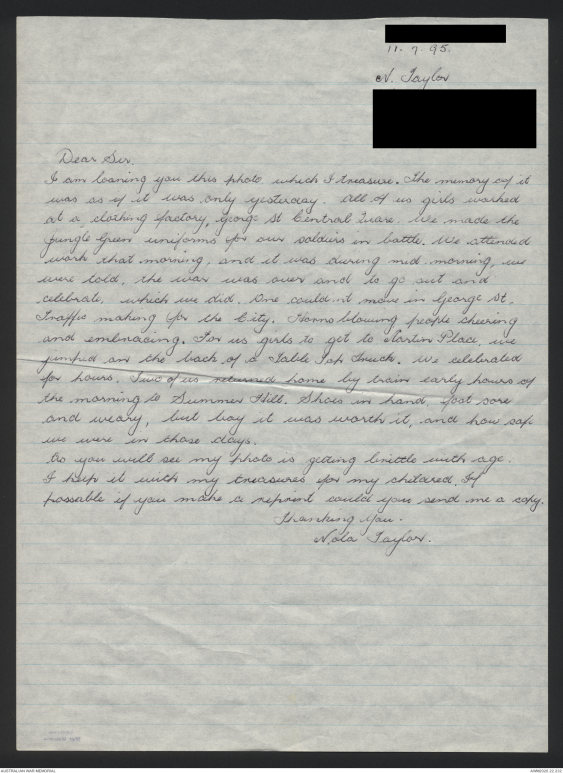 11. 7. 95.
N. Taylor
Dear Sir.
I am loaning you this photo, which I treasure. The memory of it
was as if it was only yesterday. All of us girls worked
at a clothing factory, George St Central Square. We made the
Jungle Green uniforms for our soldiers in battle. We attended
work that morning, and it was during mid morning, we
were told, the war was over and to go out and
celebrate, which we did. One could.nt move in George St.
Traffic making for the City. Horns blowing people cheering
and embracing. For us girls to get to Martin Place, we
jumped on the back of a Table Top Truck. We celebrated
for hours. Two of us returned home by train early hours of
the morning to Summer Hill. Shoes in hand, foot sore
and weary, but boy it was worth it, and how safe
we were in those days.
As you will see my photo is getting brittle with age.
I keep it with my treasures for my . If
possable if you make a reprint could you send me a copy.
Thanking you.
Nola Taylor.
AUSTRALIAN WAR MEMORIAL